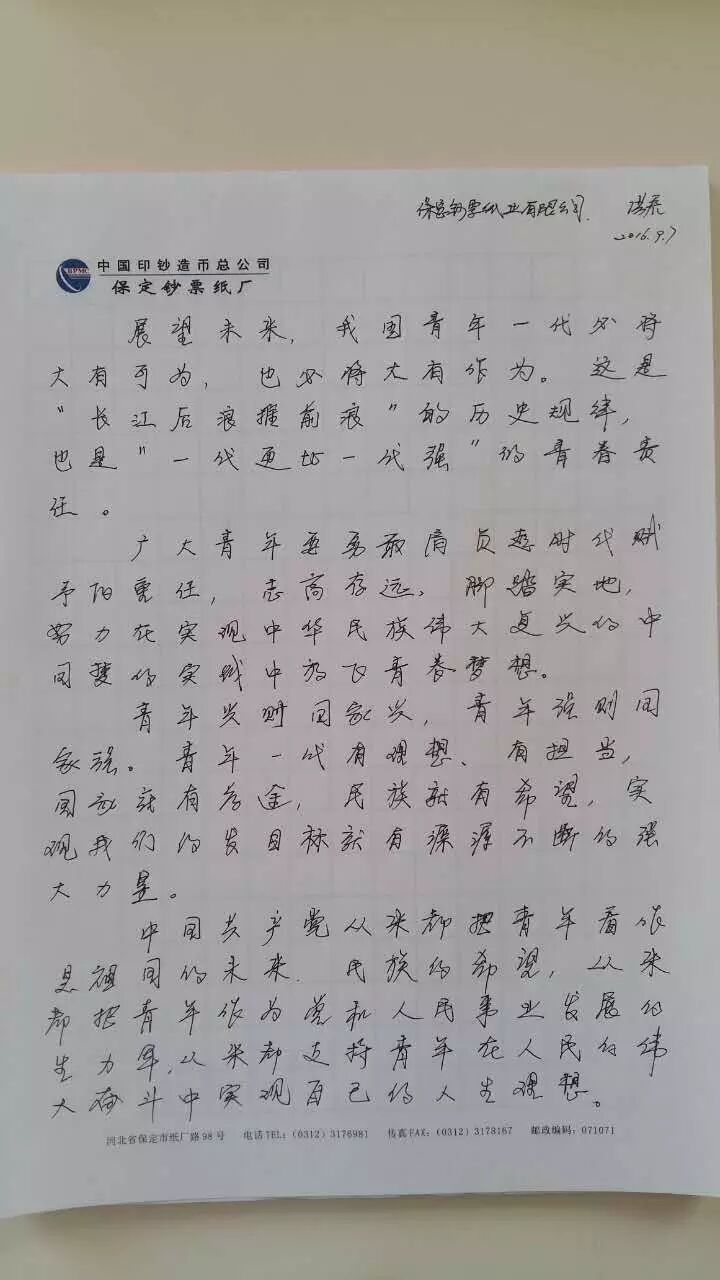 保定钞票纸业有限公司.
2016.9.7
BPMC
中国印钞造币总公司
保定钞票纸厂
展望未来，我国青年一代必将
大有可为，也必将大有作为。这是
“长江后浪推前浪”的历史规律，
也是“一代更比一代强”的青春责
任。
广大青年要勇敢肩负起时代赋
予的重任，志高存远，脚踏实地，
努力在实现中华民族伟大复兴的中
国梦的实践中放飞青春梦想。
青年兴则国家兴，青年强则国
家强。青年一代有理想、有担当，
国家就有前途，民族就有希望，实
现我们的发目标就有源源不断的强
大力量。
中国共产党从来都把青年看作
是祖国的未来、民族的希望，从来
都把青年作为党和人民事业发展的
生力军，从来都支持青年在人民的伟
大奋斗中实现自己的人生理想。
河北省保定市纸厂路98号 电话TEL：(0312) 3176981 传真FAX：(0312) 3178167 邮政编码：071071